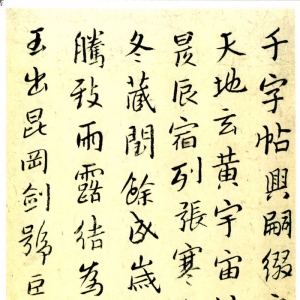 千字帖興嗣綴
天地玄黃宇宙
昃辰宿列張寒
冬藏閏餘成歲
騰致雨露結為
玉出昆岡劍號巨